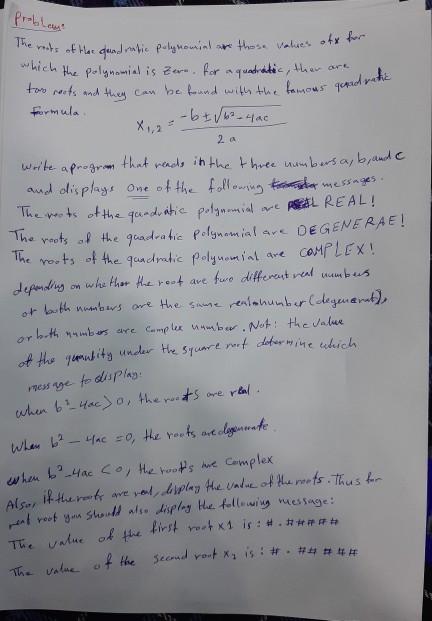 Problem:
The roots of the quadratic polynomial are those values of x for
which the polynomial is Zero. for a quadratic, ther are
two roots and they can be found with the famous quadratic
formula.
X1,2 = -b ± √b² - 4ac / 2a
write a program that reads in the three numbers a, b, and c
and displays One of the following messages.
The roots of the quadratic polynomial are REAL!
The roots of the quadratic polynomial are DEGENERAE!
The roots of the quadratic polynomial are COMPLEX!
depending on whether the root are two different real numbers
or both numbers are the same real number (degenerat),
or both numbers are complex number. Not: the value
of the quantity under the square root determine which
message to display:
when b² - 4ac > 0, the roots are real.
When b² - 4ac = 0, the roots are degenerate.
when b² - 4ac < 0, the roots are Complex
Also, if the roots are real, display the value of the roots. Thus for
real root you should also display the following message:
The value of the first root x1 is : #.#####
The value of the second root x2 is : #.#####